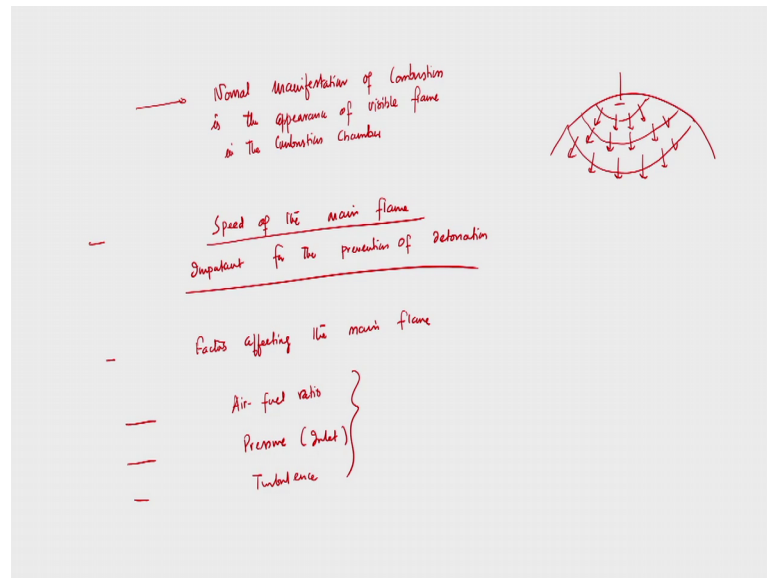 Normal manifestation of Combustion
is the appearance of visible flame
in the Combustion Chamber
Speed of the main flame
Important for the prevention of detonation
Factors affecting the main flame
Air-fuel ratio
Pressure (Inlet)
Turbulence